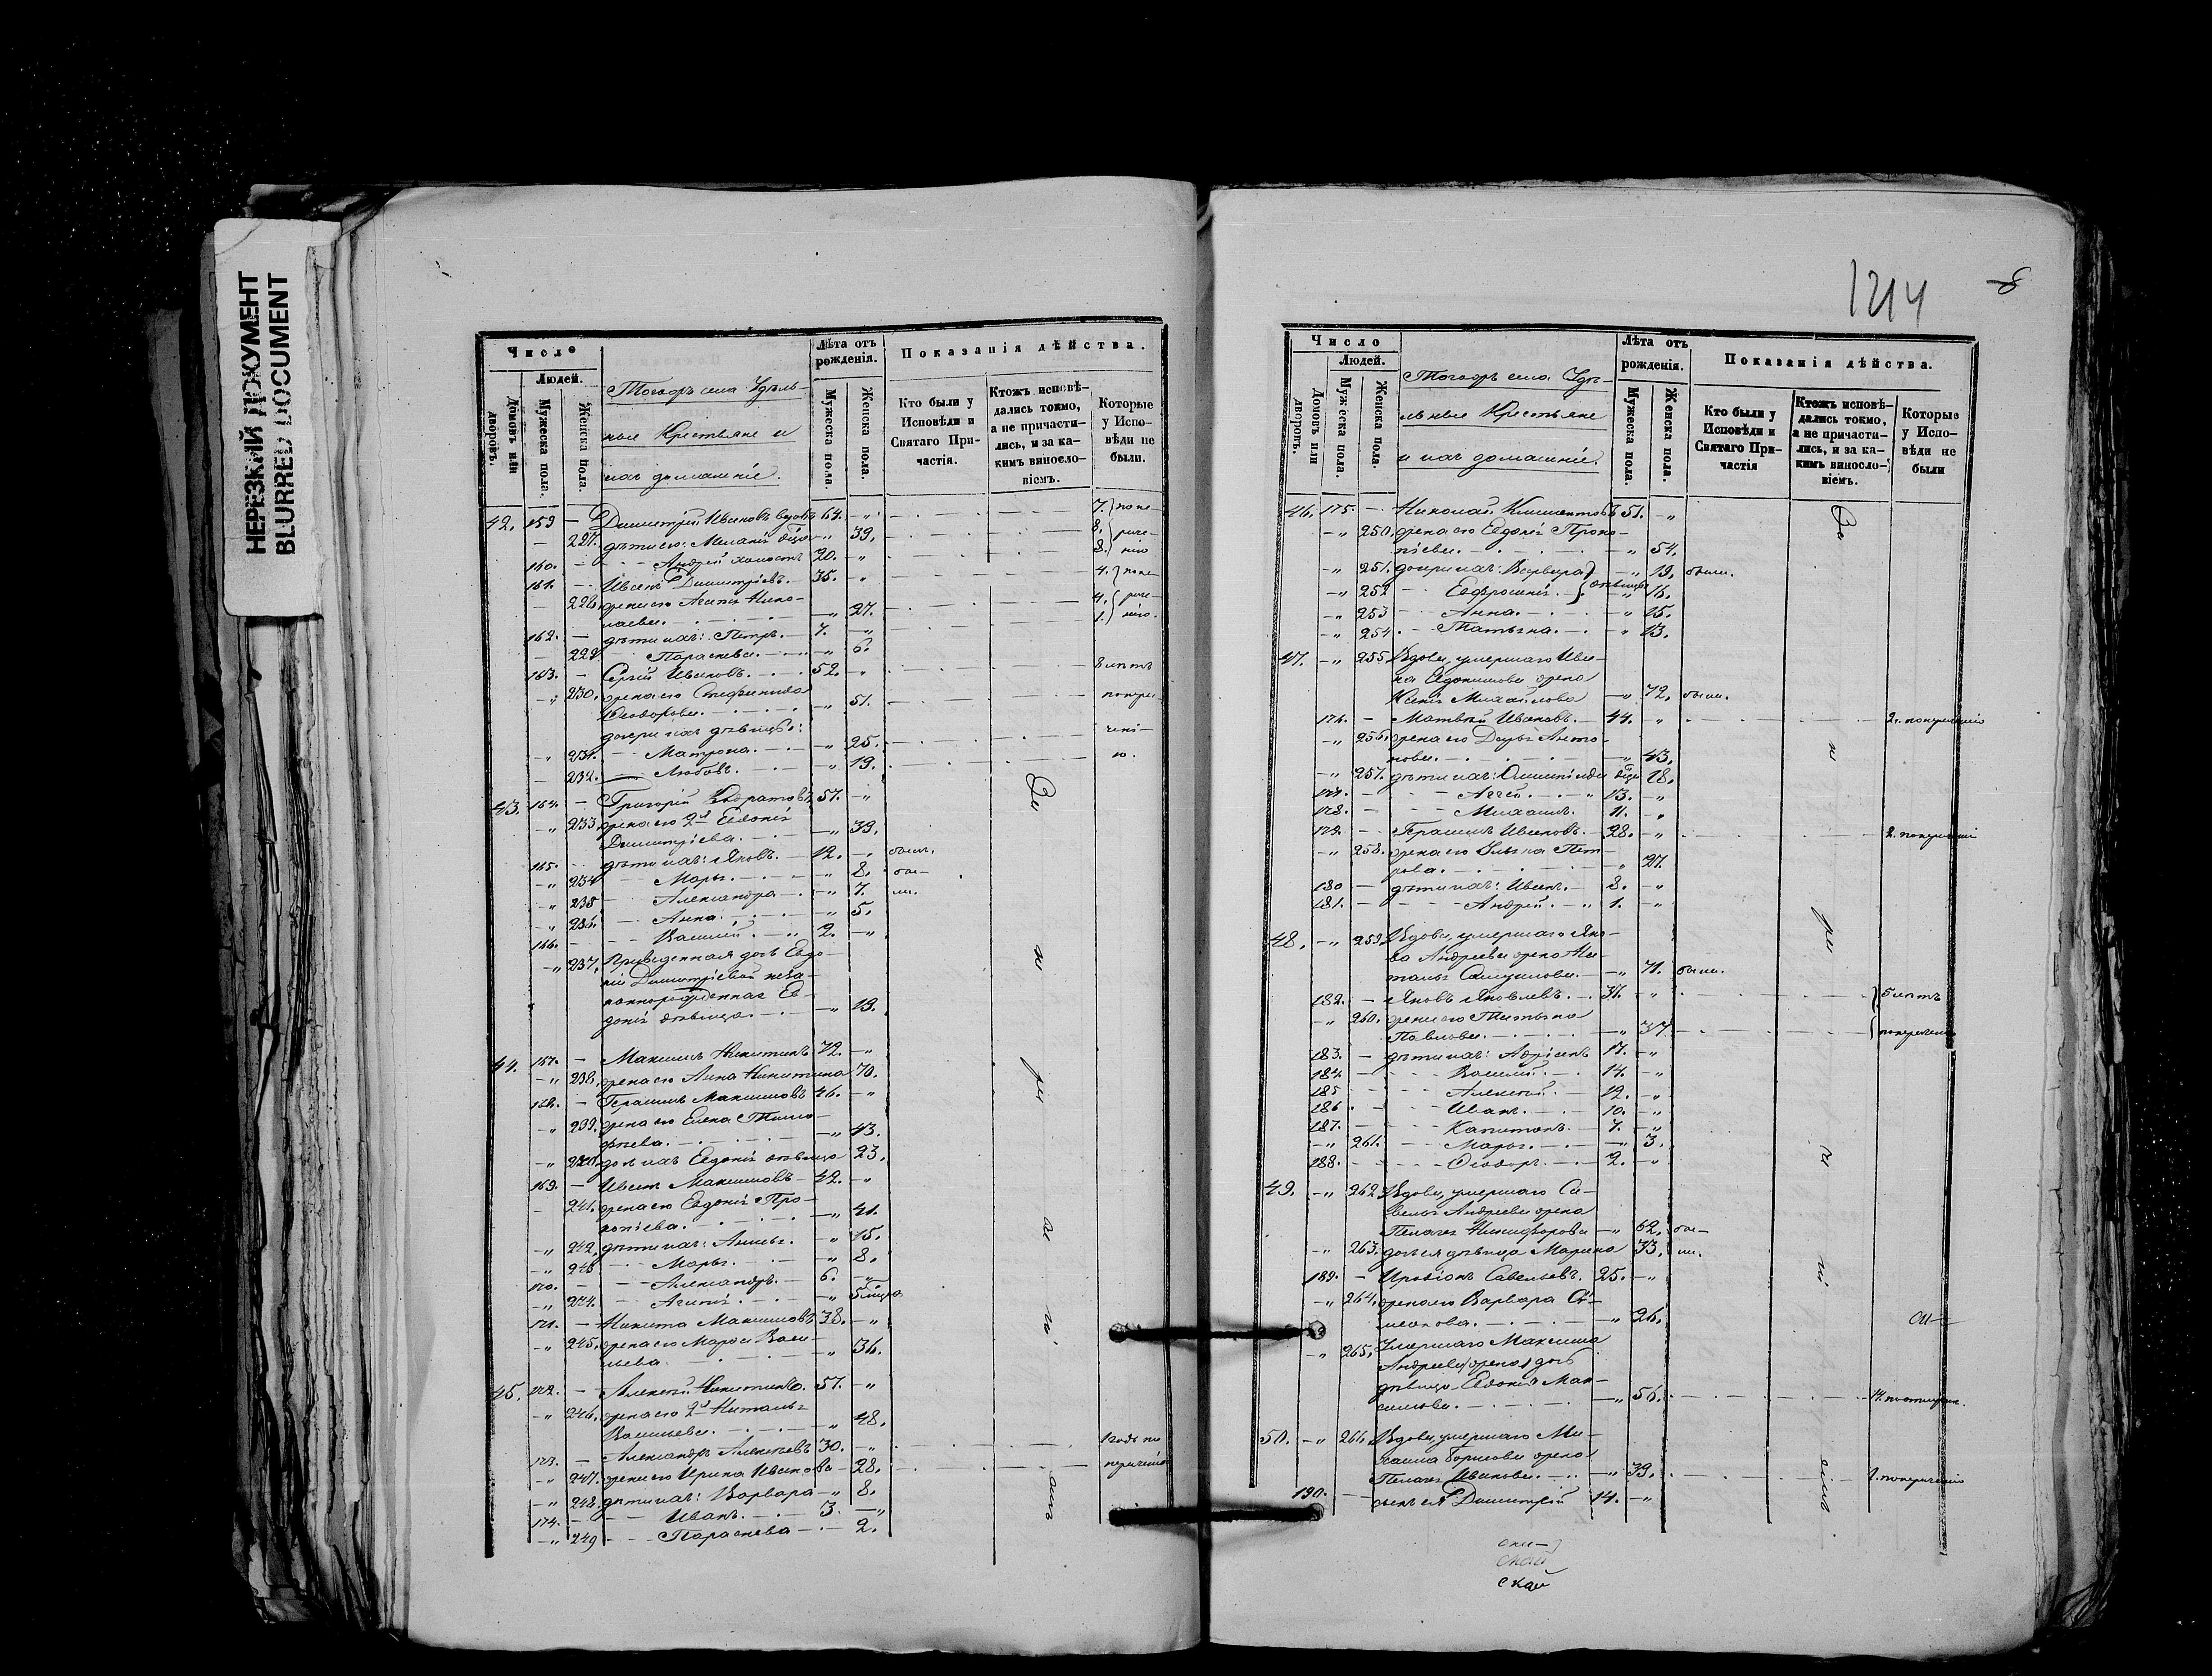 НЕРЕЗКИЙ ДОКУМЕНТ
BLURRED DOCUMENT
Число
Людей.
Домовъ или дворовъ.
Мужеска пола.
Женска пола.
Тогожъ села Удѣль-
ные Крестьяне и
ихъ домашніе.
Лѣта отъ рожденія.
Мужеска пола.
Женска пола.
Показанія дѣйства.
Кто были у Исповѣди и Святаго При-частія.
Ктожъ исповѣ-дались токмо, а не причасти-лись, и за ка-кимъ винosло-віемъ.
Которые у Испо-вѣди не были.
42. 159 — Димитрій Ивановъ вдовъ 64. —„ 7. по не-
— 227. дѣти его: Меланія дѣвица —„ 39. 8. раче-
160. — Андрей холостъ 20. „ 8. нію
161. — Иванъ Димитріевъ. 35. „ 4. по не-
— 228. жена его Агапія Нико-
лаева. —„ 27. 4. раче- 1. нію.
162. — дѣти ихъ: Петръ. 7. „
— 229. Параскева. —„ 6.
163. — Сергій Ивановъ. 52. „ 8 лѣтъ
—„ 230. жена его Стефанида
Ѳеодорова. „ 51. понера-
дочери ихъ дѣвицы: чені-
—„ 231. Матрона. —„ 25.
— 232. Любовь. —„ 19. ю.
43. 164. — Григорій Кодратовъ 57. „ За
—„ 233. жена его 2я Евдокія
Димитріева. —„ 39.
165. дѣти ихъ: Яковъ. 12. „ были.
—„ 234 Марья. —„ 8. бы-
—„ 235 Александра —„ 7. ли.
—„ 236. Анна. —„ 5.
166. — Василій. „ 2. —„ н
—„ 237. Приведенная дочь Евдо-
кіи Димитріевой неза-
коннорожденная Ев-
докія дѣвица. —„ 19.
44. 167. — Максимъ Никитинъ 72. —„
—„ 238. жена его Анна Никитина 70. ри
168. — Герасимъ Максимовъ 46. —„
—„ 239. жена его Елена Тимо-
фѣева. —„ 43.
—„ 240. дочь ихъ Евдокія дѣвица 23.
169. — Иванъ Максимовъ 42. —„
— 241. жена его Евдокія Про-
копіева. —„ 41.
—„ 242. дѣти ихъ: Анисья. —„ 15.
—„ 243 Марья. —„ 8.
170. — Александръ. 6. —„
—„ 244. Агапія. —„ 5 мѣсяц
171. — Никита Максимовъ 38. —„
—„ 245. жена его Марѳа Васи-
льева. —„ 36.
45. 172. — Алексѣй Никитинъ. 57. —„
—„ 246. жена его 2я Наталья
Васильева. „ 48.
173. — Александръ Алексѣевъ 30. —„ 1 годъ по
—„ 247. жена его Ирина Иванова 28. нераченію
—„ 248. дѣти ихъ: Варвара —„ 8.
174. — Иванъ. 3. —„
—„ 249 Параскева 2.
1214
8
Число
Людей.
Домовъ или дворовъ.
Мужеска пола.
Женска пола.
Тогожъ села Удѣ-
льные Крестьяне
и ихъ домашніе.
Лѣта отъ рожденія.
Мужеска пола.
Женска пола.
Показанія дѣйства.
Кто были у Исповѣди и Святаго При-частія
Ктожъ исповѣ-дались токмо, а не причасти-лись, и за ка-кимъ винosло-віемъ.
Которые у Испо-вѣди не были
46. 175. — Николай Климентовъ 51. —„ За
—„ 250. жена его Евдокія Проко-
піева. —„ 54.
—„ 251. дочери ихъ: Варвара —„ 19. были.
—„ 252 Евфросинія. дѣвицы „ 16.
—„ 253 Анна. —„ 15.
—„ 254. Татьяна. —„ 13.
47. —„ 255 Вдова, умершаго Ива-
на Евдокимова жена
Ксенія Михайлова —„ 72. были.
176. — Матвѣй Ивановъ. 44. „ 2. понераченію
—„ 256. жена его Дарья Анто-
нова. „ 43. н
—„ 257. дѣти ихъ: Олимпіада дѣвица 18.
177. — Аггей. 13. —„
178. — Михаилъ. 11. „
179. — Герасимъ Ивановъ. 28. —„ 2. понераченію
—„ 258. жена его Ульяна Пет-
рова. „ 27.
180 — дѣти ихъ: Иванъ. 8. —„
181. — Андрей. „ 1. —„
48. —„ 259. Вдова, умершаго Яко-
ва Андреева жена На-
талья Самуилова. —„ 71. были.
182. — Яковъ Яковлевъ. 37. „ 5 лѣтъ
—„ 260. жена его Татьяна
Павлова. —„ 37 понераченію
183. — дѣти ихъ: Адріанъ 17. —„
184. — Василій. 14. —„
185 Алексѣй. 12. —„
186. Иванъ. 10. —„
187. — Капитонъ. 7. —„
—„ 261. Марья. —„ 3.
188. Ѳеодоръ. 2. —„
49. —„ 262. Вдова, умершаго Са-
велья Андреева жена
Пелагея Никифорова —„ 62. бы-
—„ 263. дочь ея дѣвица Марина 33. ли.
189. — Иродіонъ Савельевъ. 25. —„
—„ 264. жена его Варвара Си-
меонова. —„ 26.
—„ 265. Умершаго Максима
Андреева (жена) дочь
дѣвица Евдокія Мак-
симова. —„ 56. 14.
50. —„ 266. Вдова, умершаго Ми-
хаила Борисова жена
Пелагея Иванова. —„ 39. 1. понераченію
190. — сынъ ея Димитрій 14. —„
скай